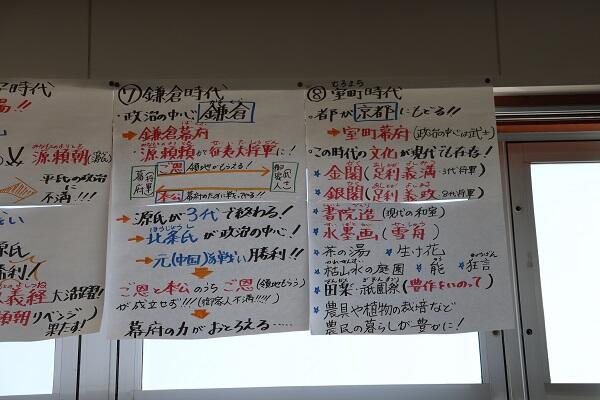 時代
源頼朝
平氏の政治
に
不満!!!
源氏
勝利!
義経 大活躍!
頼朝 リベンジ
果たす!
⑦鎌倉時代
・政治の中心 鎌倉
→鎌倉幕府
・源頼朝が征夷大将軍に!
ご恩 領地がもらえる!
幕府
将軍
武士
奉公 幕府のために戦う!!
→源氏が3代で終わる!
→北条氏が政治の中心!
→元(中国)との戦い 勝利!!
ご恩と奉公のうち ご恩(領地もらう)
が成立せず!!!(御家人不満!!!!)
幕府の力がおとろえる……
⑧室町時代
むろまち
・都が京都にもどる!!
→室町幕府(政治の中心は武士)
・この時代の文化が現代でも存在!
★金閣(足利義満 3代将軍)
★銀閣(足利義政 8代将軍)
★書院造(現代の和室)
★水墨画(雪舟)
★茶の湯 ★生け花
★枯山水の庭園 ★能 ★狂言
★田楽・祇園祭(豊作をいのって)
★農具や植物の栽培など
農民の暮らしが豊かに!